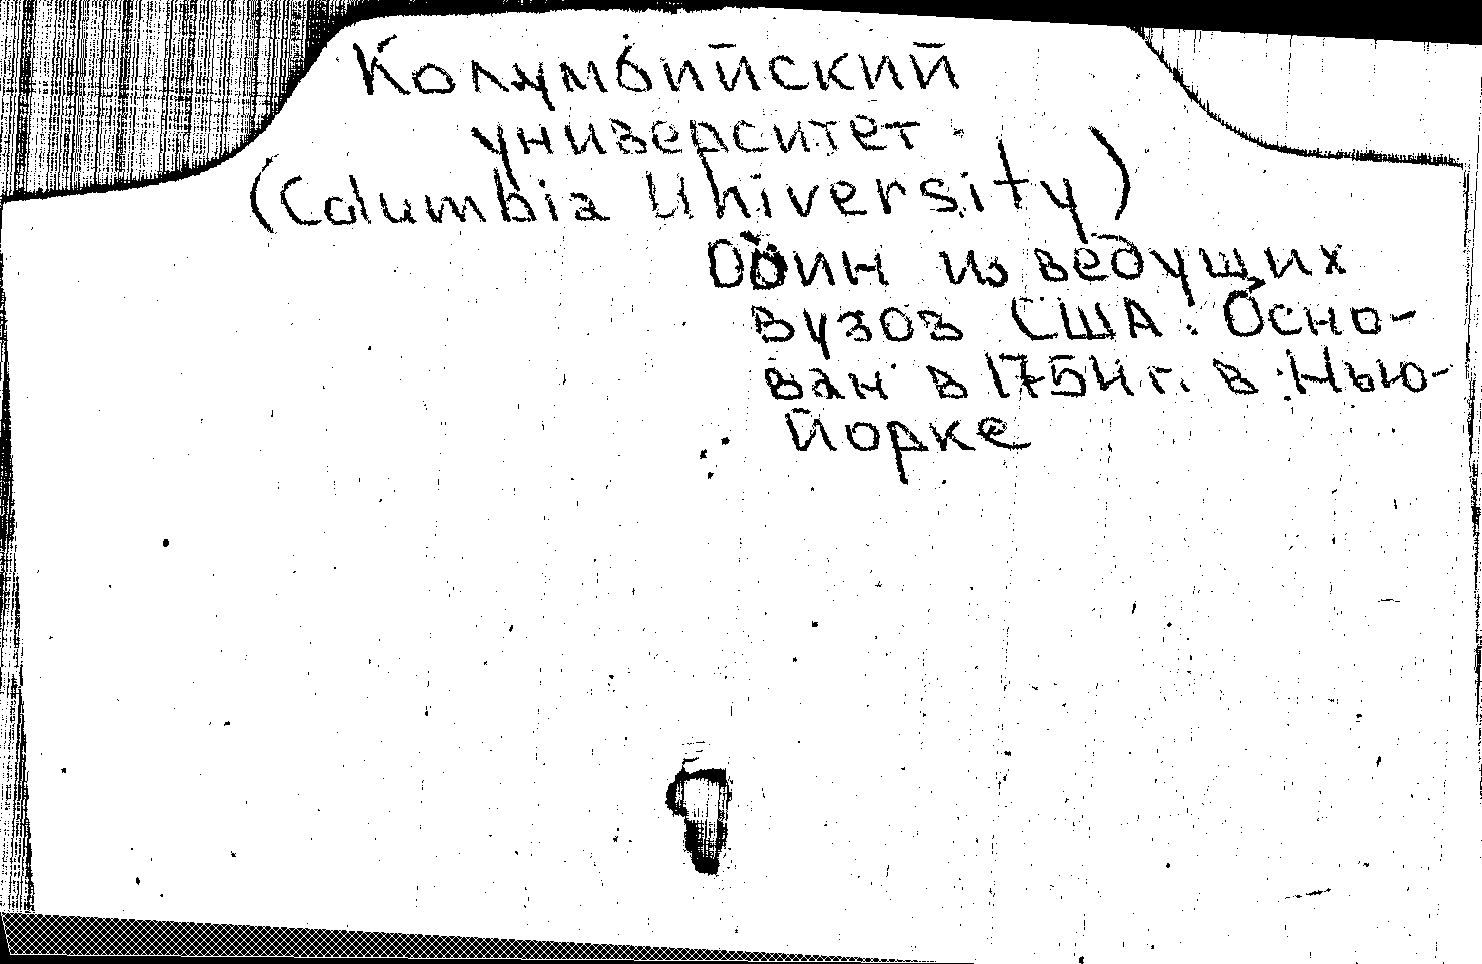 Колумбийский
университет
(Columbia University)
Один из ведущих
вузов США. Осно-
ван в 1754 г. в Нью-
Йорке